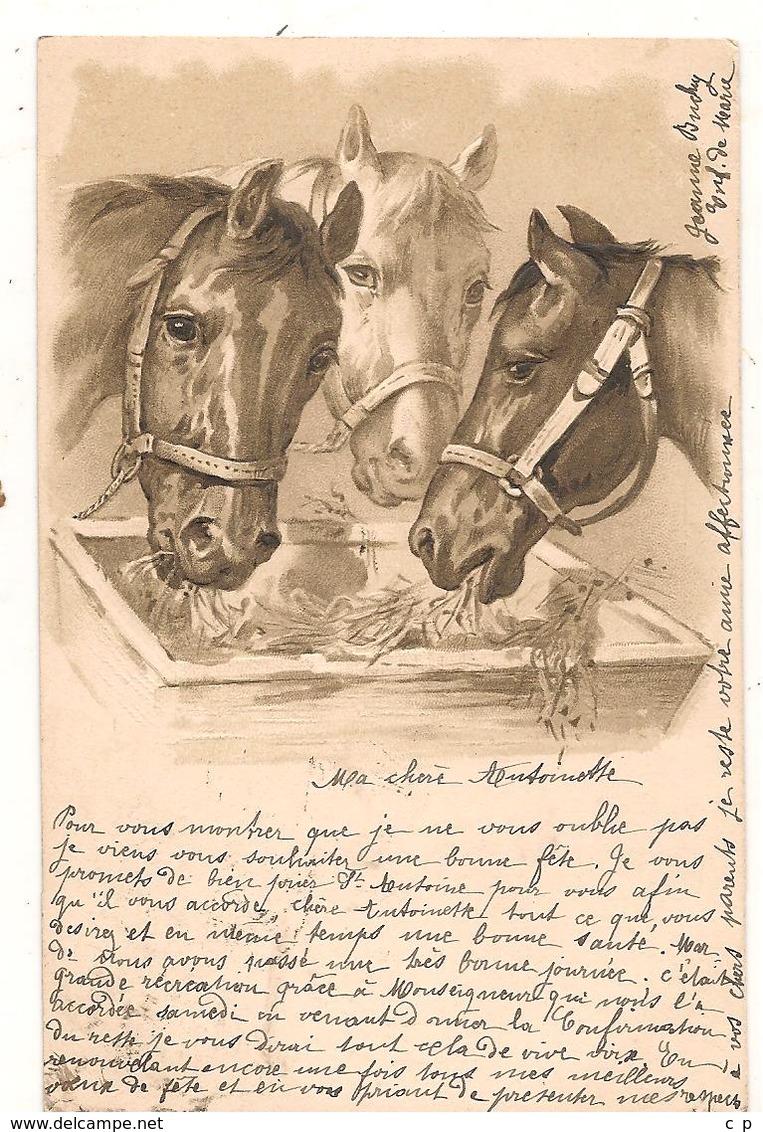 Ma chère Antoinette
Pour vous montrer que je ne vous oublie pas
je viens vous souhaiter une bonne fête. Je vous
promets de bien prier St Antoine pour vous afin
qu'il vous accorde, chère Antoinette tout ce que vous
desirez et en même temps une bonne santé. Mar.
di nous avons passé une très bonne journée. c'était
grande récréation grâce à Monseigneur qui nous l'a
accordée samedi en venant donner la Confirmation
du reste je vous dirai tout cela de vive voix. En
renouvelant encore une fois tous mes meilleurs
vœux de fête et en vous priant de présenter mes respects
à vos chers parents je reste votre amie affectionnée
Jeanne
Enf. de Marie
www.delcampe.net
c p